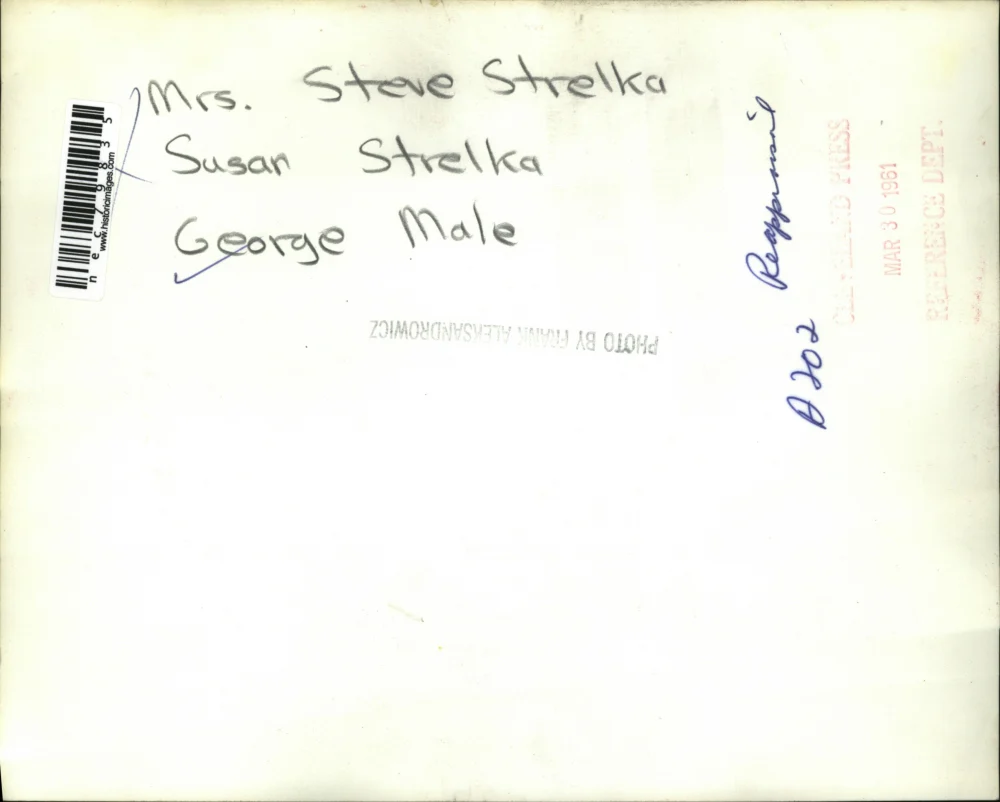 Mrs. Steve Strelka
Susan Strelka
George Male
PHOTO BY FRANK ALEKSANDROWICZ
A202 Reappraisal
CLEVELAND PRESS
MAR 30 1961
REFERENCE DEPT.
nec79835
www.historicimages.com